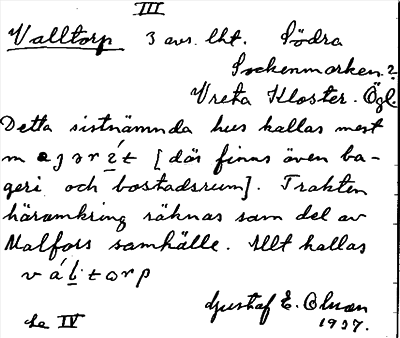 III
Valltorp 3 avs. lht. Södra
Sockenmarken.?
Vreta Kloster. Ögl.
Detta sistnämnda hus kallas mest
m a g a r i ́ t [där finns även ba-
geri och bostadsrum]. Trakten
häromkring räknas som del av
Malfors samhälle. Allt kallas
v á l t o r p
Gustaf E. Olsson
1937.
Se IV